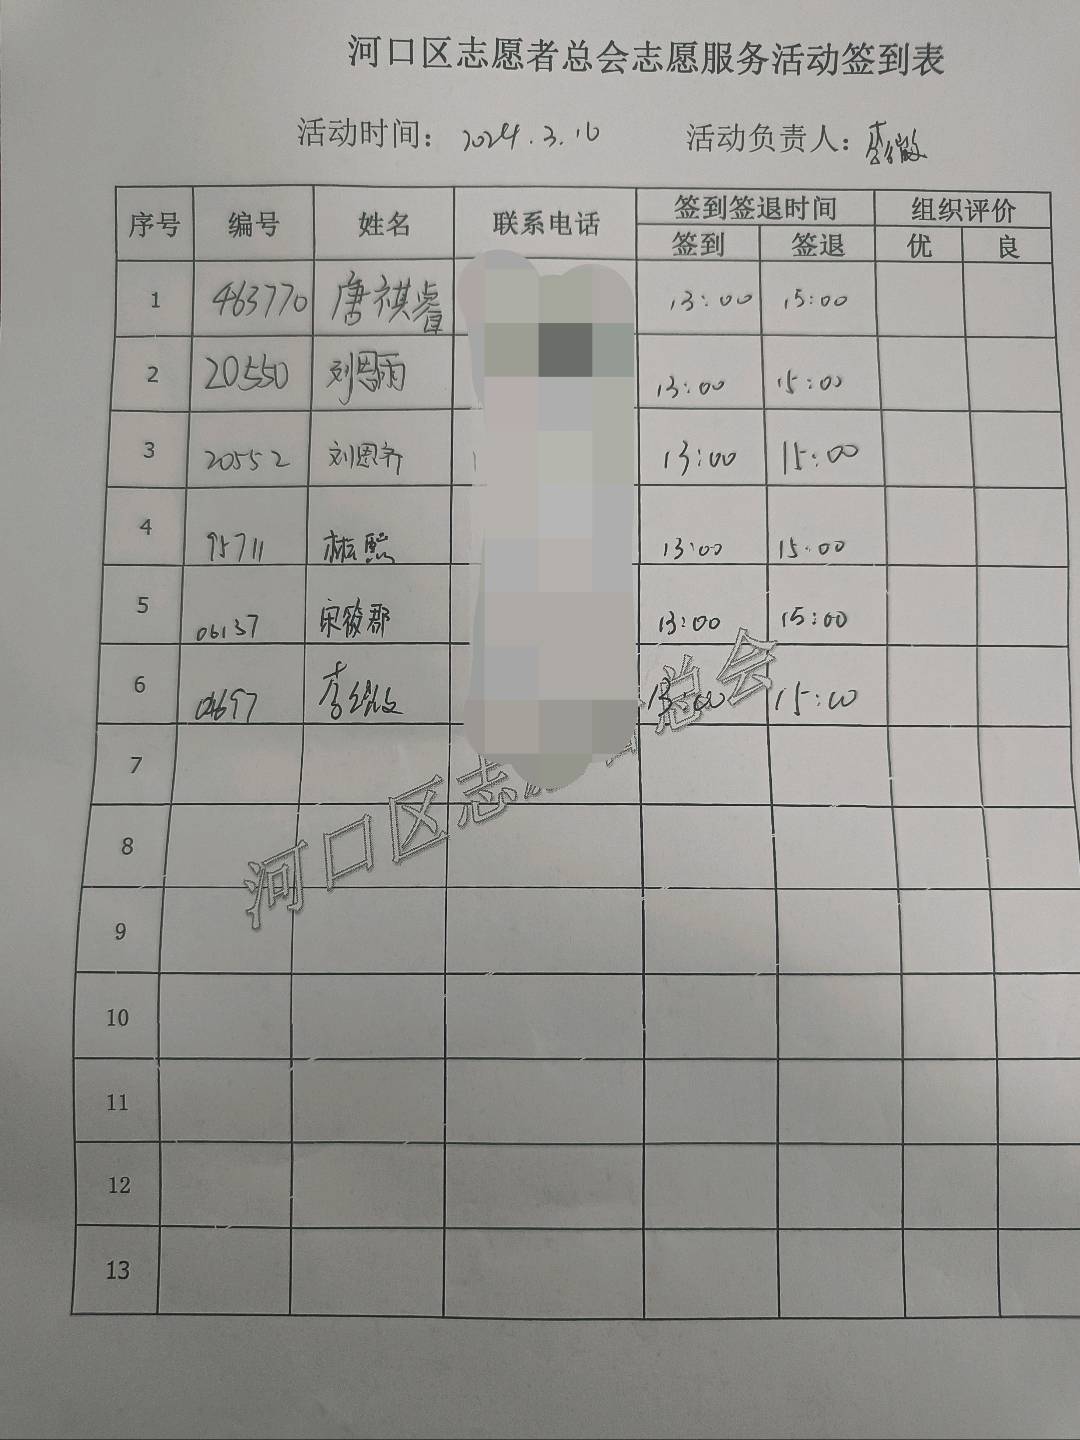 河口区志愿者总会志愿服务活动签到表
活动时间：2024.3.16 活动负责人：李
序号 编号 姓名 联系电话 签到签退时间 组织评价
签到 签退 优 良
1 463770 唐祺睿 13:00 15:00
2 20550 刘恩雨 13:00 15:00
3 20552 刘恩齐 13:00 15:00
4 95711 13:00 15:00
5 06137 宋筱郡 13:00 15:00
6 04697 李 13:00 15:00
7
8
9
10
11
12
13
河口区志 总会